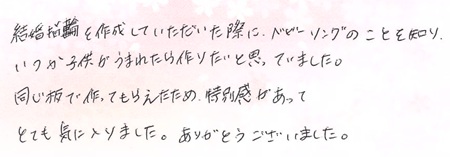 結婚指輪を作成していただいた際に、ベビーリングのことを知り、
いつか子供がうまれたら作りたいと思っていました。
同じ柄で作ってもらえたため、特別感があって
とても気に入りました。ありがとうございました。